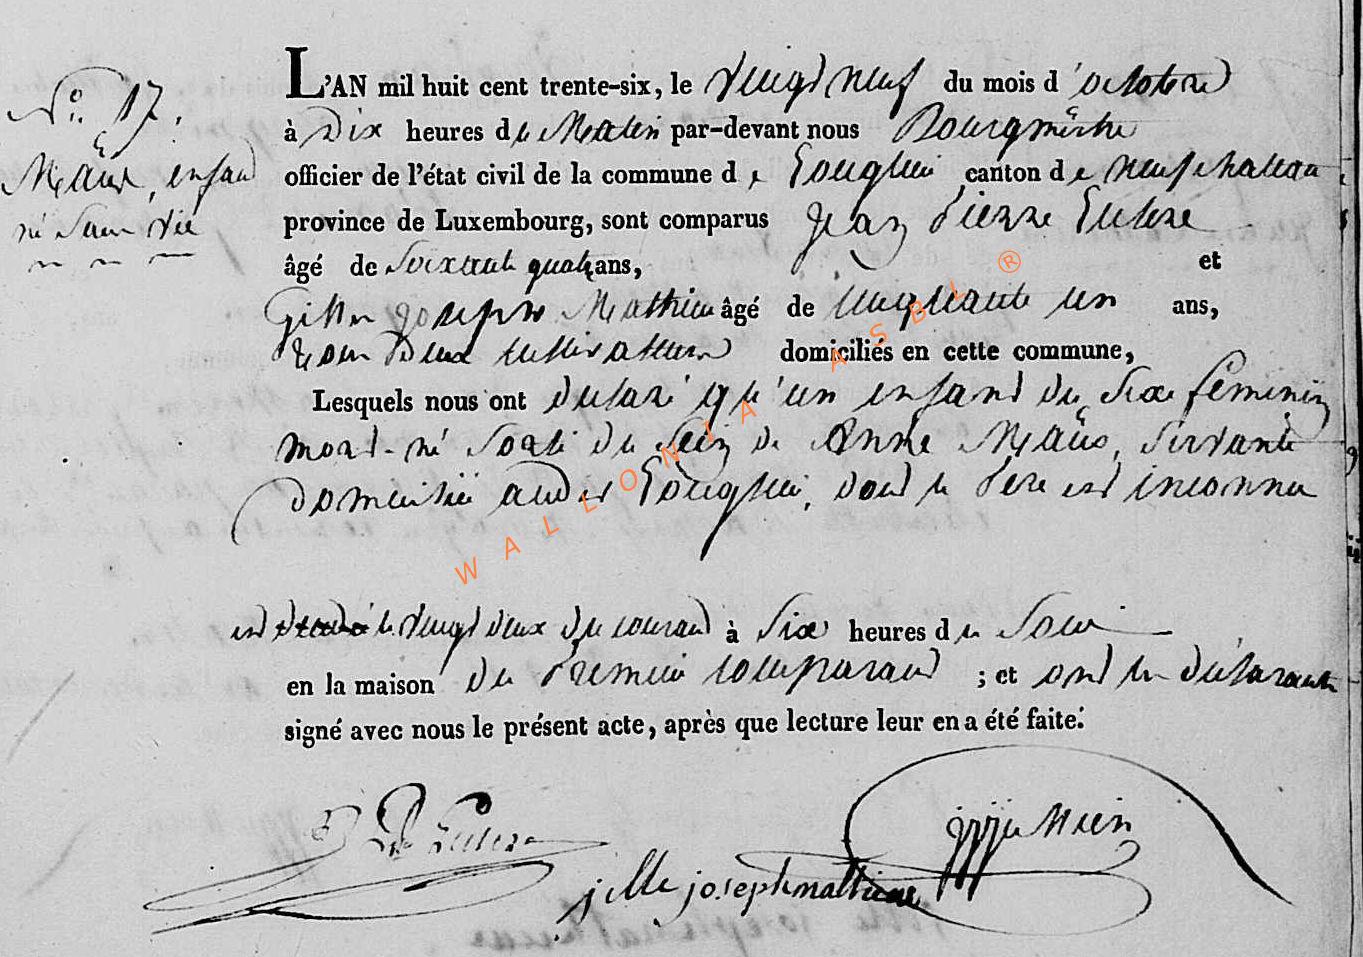 N.º 17.
Maüs, enfant
né sans vie
L'AN mil huit cent trente-six, le vingt neuf du mois d'octobre
à Dix heures du Matin par-devant nous Bourgmestre
officier de l'état civil de la commune de canton de neufchateau
province de Luxembourg, sont comparus Jean Pierre
âgé de Soixante quatre ans, et
Gilles Joseph Mathieu âgé de cinquante un ans,
tous deux cultivateurs domiciliés en cette commune,
Lesquels nous ont déclaré qu'un enfant du sixe féminin
mort-né sorti du sein de Anne Maüs, servante
domiciliée audit dont le Père est inconnu
est le vingt deux du courant à Six heures du Soir
en la maison du Premier comparant ; et ont les déclarants
signé avec nous le présent acte, après que lecture leur en a été faite.
jille joseph mathieux
WALLONIA ASBL ®